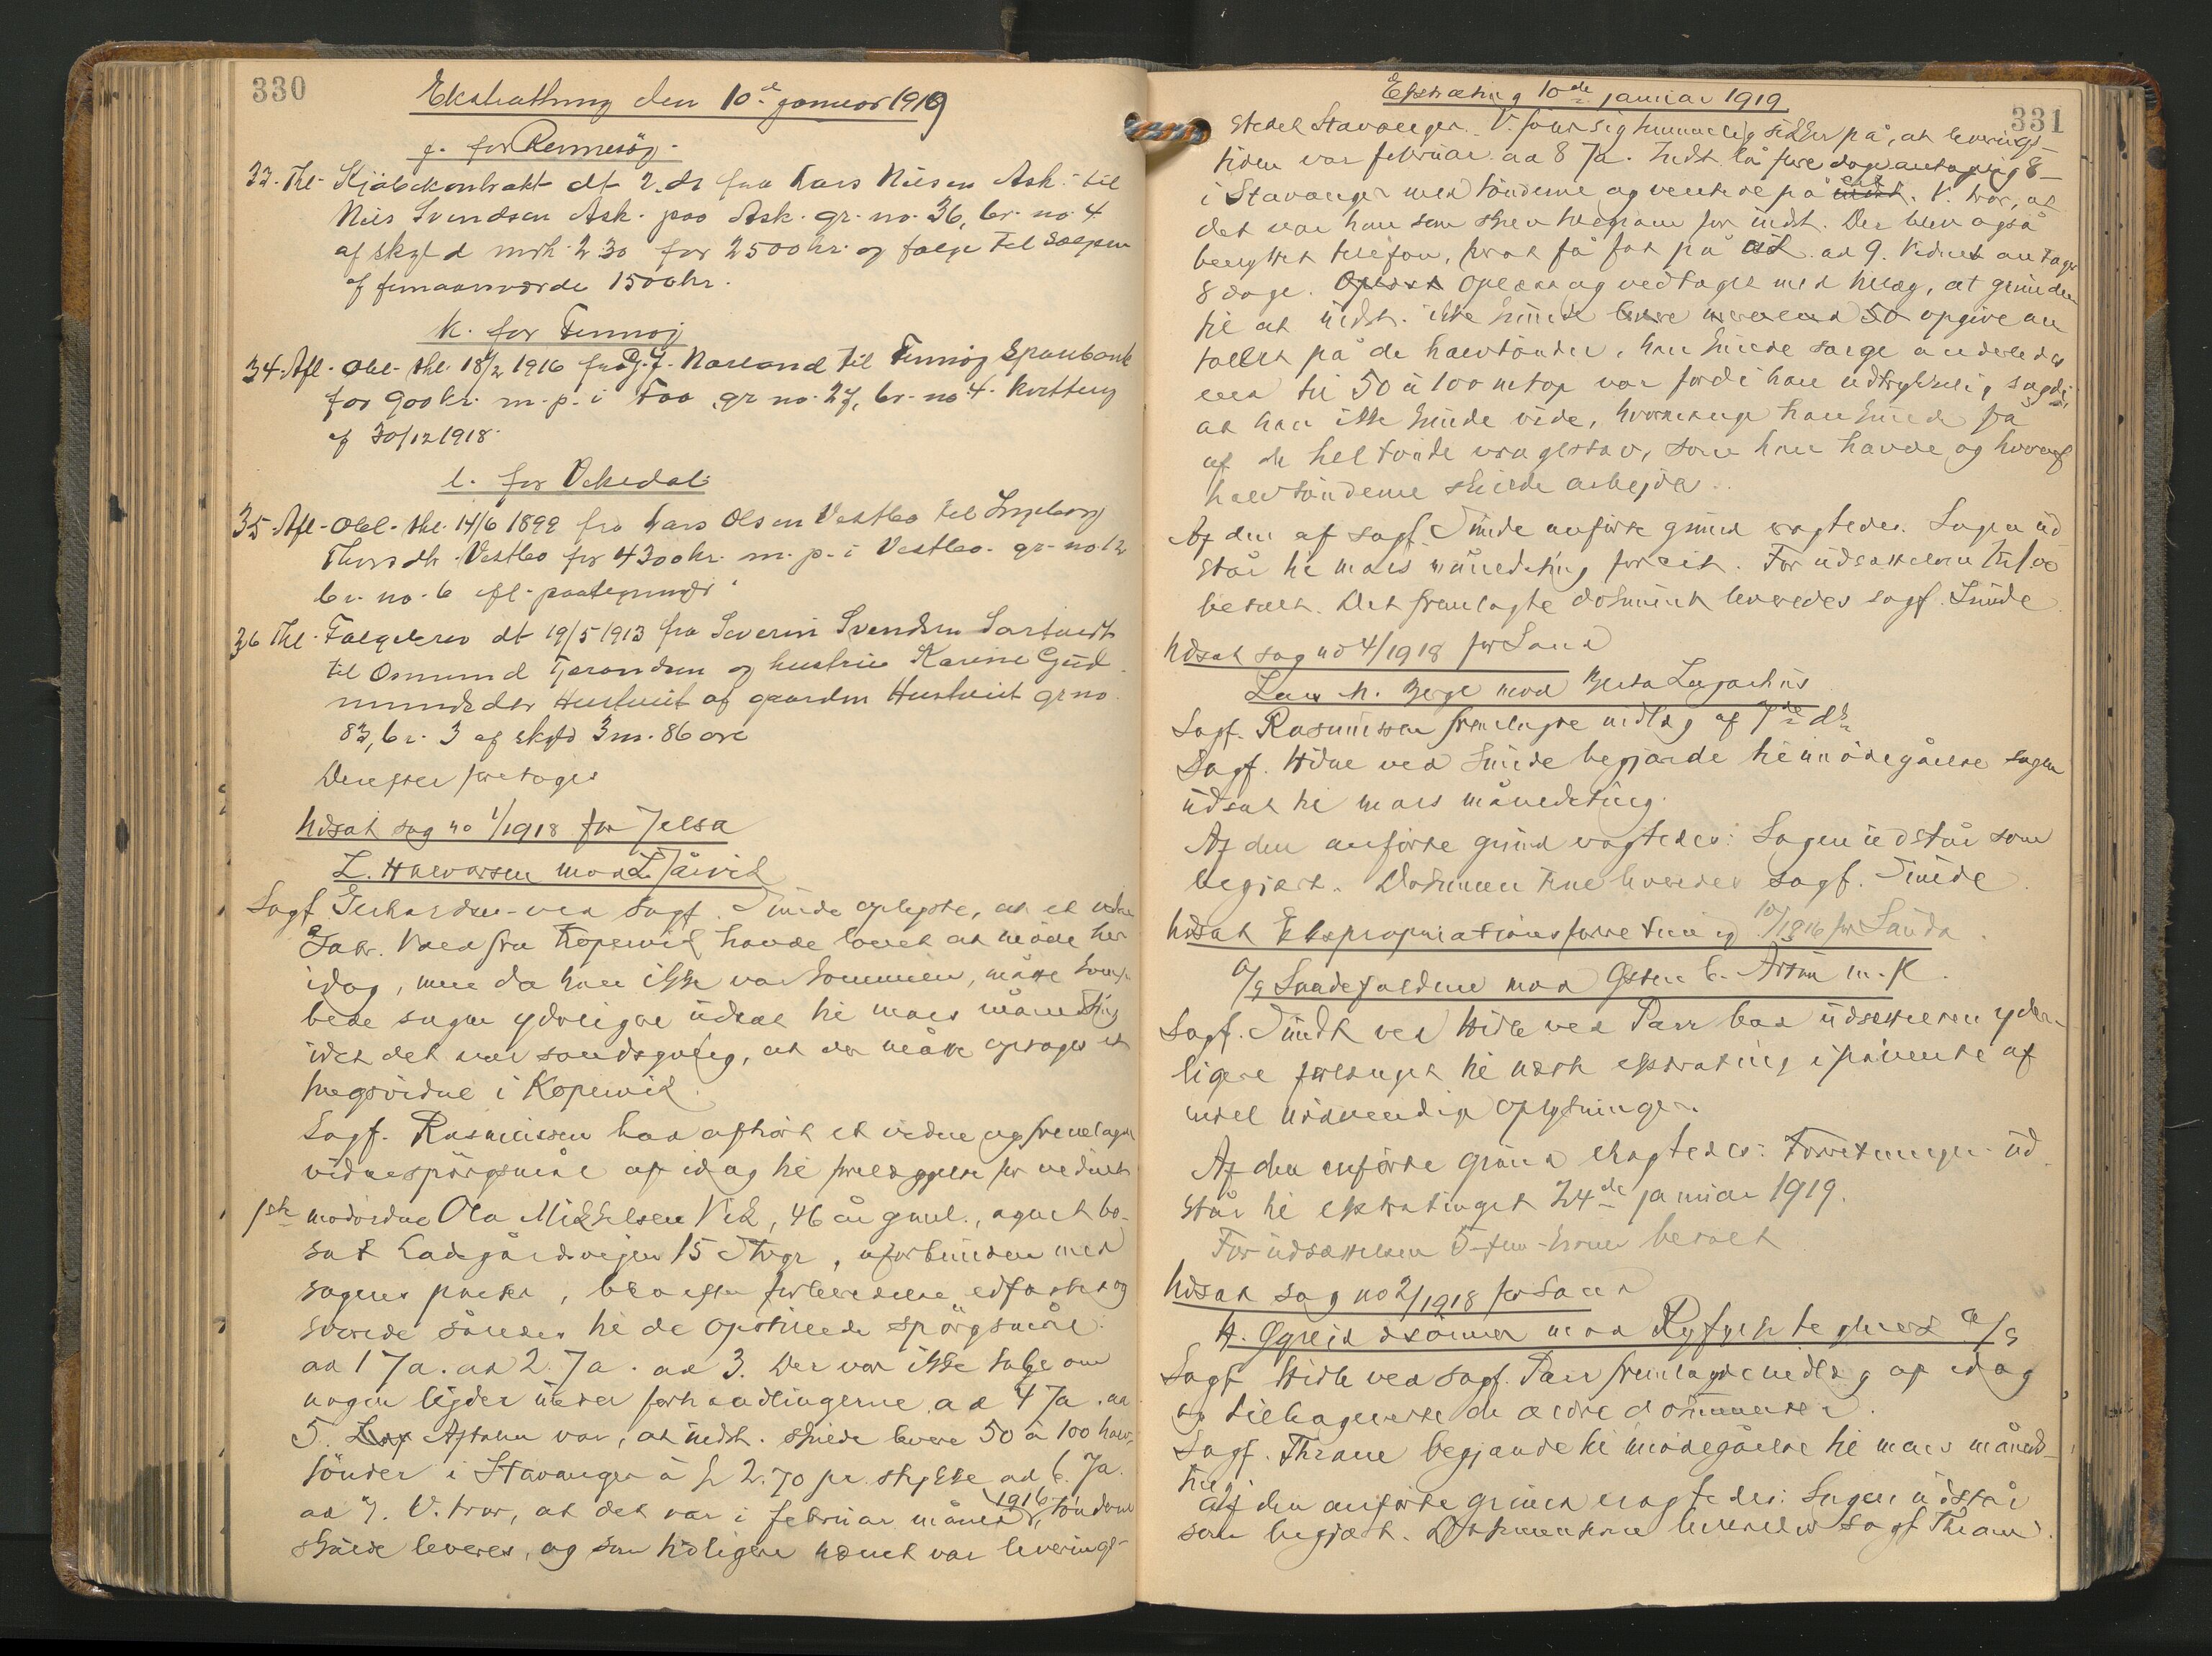 330
Ekstrathing den 10de januar 1919
j. for Rennesöy.
33. Thl. Kjöbekontrakt dt 2. ds fra Lars Nilsen Ask til
Nils Svendsen Ask. paa Ask. gr. no. 36, br. no. 4
af skyld mrk. 2 30 for 2500 kr. og følge til sælgeren
af femaarsværdi 1500 kr.
k. for Finnøj
34. Afl. Obl. thl. 18/2 1916 fra J. Narland til Finnøj Sparebank
for 900 kr. m. p. i Foo gr. no. 27, br. no. 4. kvittering
af 30/12 1918.
l. for Vikedal
35. Afl. Obl. thl. 14/6 1892 fra Lars Olsen Vestbø til Ingeborg
Thorsdtr. Vestbø for 4300 kr. m. p. i Vestbø. gr. no. 12
br. no. 6 efl. paategning
36 Thl. Følgebrev dt 19/5 1913 fra Severin Svendsen
til Osmund Tjerandsen og hustru Karine Gud
mundsdtr Hustveit af gaarden Hustveit gr no.
83, br. 3 af skyld 3 m. 86 øre
Derefter foretoges
Udsat sag no 1/1918 for Jelsa
L. Halvorsen mod L. Jåsvik
Sagf. Gerhardsen ved sagf. Sunde oplyste, at et vidne
Jakr. fra Kopervik havde lovet at møde her
idag, men da han ikke var kommen, måtte komp.
bede sagen yderligere udsat til mars månedsting
idet det var sandsynlig, at der måtte optages et
tingsvidne i Kopervik.
Sagf. Rasmussen bad afhørt et vidne og fremlagde
vidnespörgsmål af idag til forelæggelse for vidnet
1ste modvidne Ola Mikkelsen Vik, 46 år gml., agent bo-
sat Ladegårdsvejen 15 Stvgr, uforbunden med
sagens parter, blev efter forberedelse edfæstet og
svarede således til de opstillede spörgsmål:
ad 1 Ja. ad 2. Ja. ad 3. Der var ikke tale om
nogen lejder under forhandlingerne. ad 4 Ja. ad
5. Aftalen var, at indst. skulde levere 50 à 100 halv-
tönder i Stavanger à kr 2.70 pr. stykke ad 6. Ja.
ad 7. V. tror, at det var i februar måned 1916, tönderne
skulde leveres, og som tidligere nævnt var leverings-
331
Ekstrating 10de januar 1919
stedet Stavanger. V. föler sig temmelig sikker på, at leverings-
tiden var februar. ad 8 Ja. Indst. lå flere dage antagelig 8
i Stavanger med tönderne og ventede på indst. V. tror, at
det var han som skrev telegram for indst. Der blev også
benyttet telefon, for at få fat på ad 9. Vidnet antager
8 dage. Oplæst og vedtaget med tillæg, at grunden
til at indst. ikke kunde levere 50 opgive an
tallet på de halvtönder, han kunde sælge anderledes
end til 50 à 100 netop var fordi han udtrykkelig sagde,
at han ikke kunde vide, hvormange han kunde få
af de heltönde vragstav, som han havde og hvoraf
halvtönderne skulde arbejdes.
Af den af sagf. Sunde anførte grund eragtedes. Sagen ud
står til mars månedsting foreit. For udsættelsen kr 1.00
betalt. Det fremlagte dokument leveredes sagf. Sunde.
Udsat sag no 4/1918 for Sand
Lars N. Berge mod Berta
Sagf. Rasmussen fremlagde indlæg af 7de ds.
Sagf. Hidle ved Sunde begjærde til imødegåelse sagen
udsat til mars månedsting.
Af den anförte grund eragtedes: Sagen udstår som
begjært. Dokumenterne leveredes sagf. Sunde.
Udsat Ekspropriationsforretning 10/1816 for Sauda
A/S Saudefaldene mod Østen m. fl.
Sagf. Sundt ved Hidle ved Parr bad udsættelsen yder
ligere forlænget til næste ekstrating i påvente af
endel nödvendige oplysninger.
Af den anförte grund eragtedes: Forretningen ud
står til ekstratinget 24de januar 1919.
For udsættelsen 5-fem-kroner betalt
Udsat sag no 2/1918 for Sand
H. mod Ryfylke teglverk A/S
Sagf Hidle ved sagf. Parr fremlagde indlæg af idag
og tilbageleverte de ældre dokumenter.
Sagf. Thrane begjærde til imødegåelse til mars måneds-
ting
Af den anförte grund eragtedes: Sagen udstår
som begjært. Dokumenterne leveredes sagf Thrane.